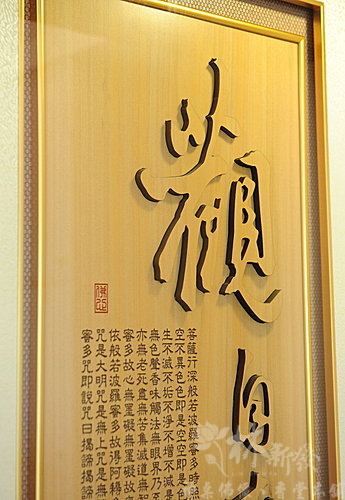 觀自
菩薩行深般若波羅蜜多時
空不異色色即是空空即是
生不滅不垢不淨不增不減
無色聲香味觸法無眼界
亦無老死盡無苦集滅道無智
蜜多故心無罣礙無罣礙故
依般若波羅蜜多故得阿耨
咒是大明咒是無上咒是無
蜜多咒即說咒曰揭諦揭諦